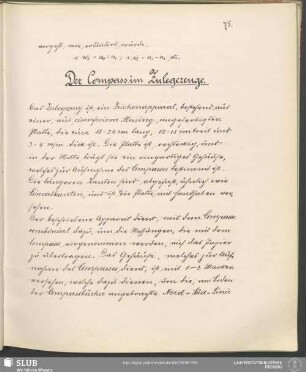 75.
Der Compass im Zulegezeuge.
Das Zulegezeug ist ein Zeichenapparat, bestehend aus
einer, aus eisenfreiem Messing, angefertigten
Platte, die eine 18-20 cm lang, 12-15 cm breit und
dick ist. Die Platte ist rechteckig, und
in der Mitte trägt sie ein ringartiges Gehäuse,
welches zur Aufnahme des Compasses bestimmt ist.
Die längeren Kanten sind abgeschrägt, ähnlich wie
Linealkanten, und ist die Platte mit Handhaben ver-
sehen.
Der beschriebene Apparat dient, mit dem Compass
combiniert dazu, um die Messungen, die mit dem
Compass vorgenommen worden, auf das Papier
zu übertragen. Das Gehäuse, welches zur Auf-
nahme des Compasses dient, ist mit 1-2 Marken
versehen, welche dazu dienen, um die, am Boden
der Compassbüchse angebrachte Nord-Süd-Linie
SLUB
Wir führen Wissen.